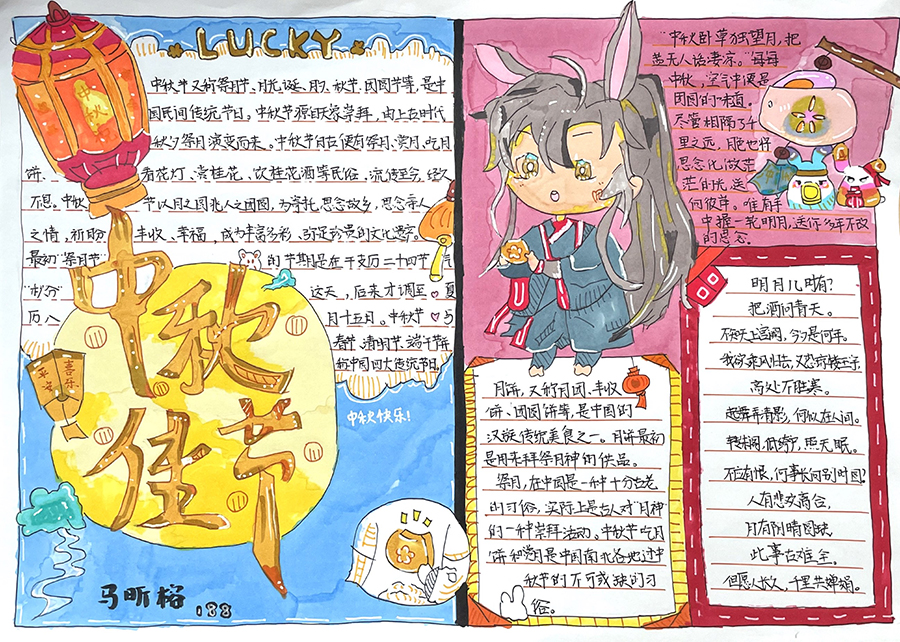 LUCKY
中秋节又称祭月节、月光诞、月夕、秋节、团圆节等，是中
国民间传统节日。中秋节源自天象崇拜，由上古时代
秋夕祭月演变而来。中秋节自古便有祭月、赏月、吃月
饼、看花灯、赏桂花、饮桂花酒等民俗，流传至今，经久
不息。中秋节以月之圆兆人之团圆，为寄托思念故乡，思念亲人
之情，祈盼丰收、幸福，成为丰富多彩、弥足珍贵的文化遗产。
最初"祭月节"的节期是在干支历二十四节气
"秋分"这天，后来才调至夏
历八月十五日。中秋节与
春节、清明节、端午节并
称中国四大传统节日。
中秋佳节
秋
平安
喜乐
中秋快乐！
马昕榕
"中秋卧草独望月，把
盏无人话凄凉。"每每
中秋，空气中便是
团圆的味道。
尽管相隔了千
里之远，月色也将
思念化做茫
茫的光，送
何彼岸。唯有手
中握一轮明月，送你多年不改
的思念。
月饼，又称月团、丰收
饼、团圆饼等，是中国的
汉族传统美食之一。月饼最初
是用来拜祭月神的供品。
祭月，在中国是一种十分古老
的习俗，实际上是古人对"月神"
的一种崇拜活动。中秋节吃月
饼和赏月是中国南北各地过中
秋节的不可或缺的习
俗。
明月几时有？
把酒问青天。
不知天上宫阙，今夕是何年。
我欲乘风归去，又恐琼楼玉宇，
高处不胜寒。
起舞弄清影，何似在人间。
转朱阁，低绮户，照无眠。
不应有恨，何事长向别时圆？
人有悲欢离合，
月有阴晴圆缺，
此事古难全。
但愿人长久，千里共婵娟。